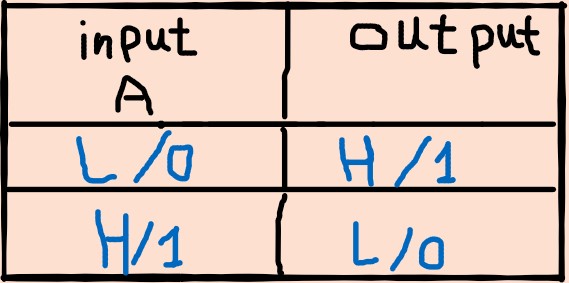 input output
A
L/0 H/1
H/1 L/0